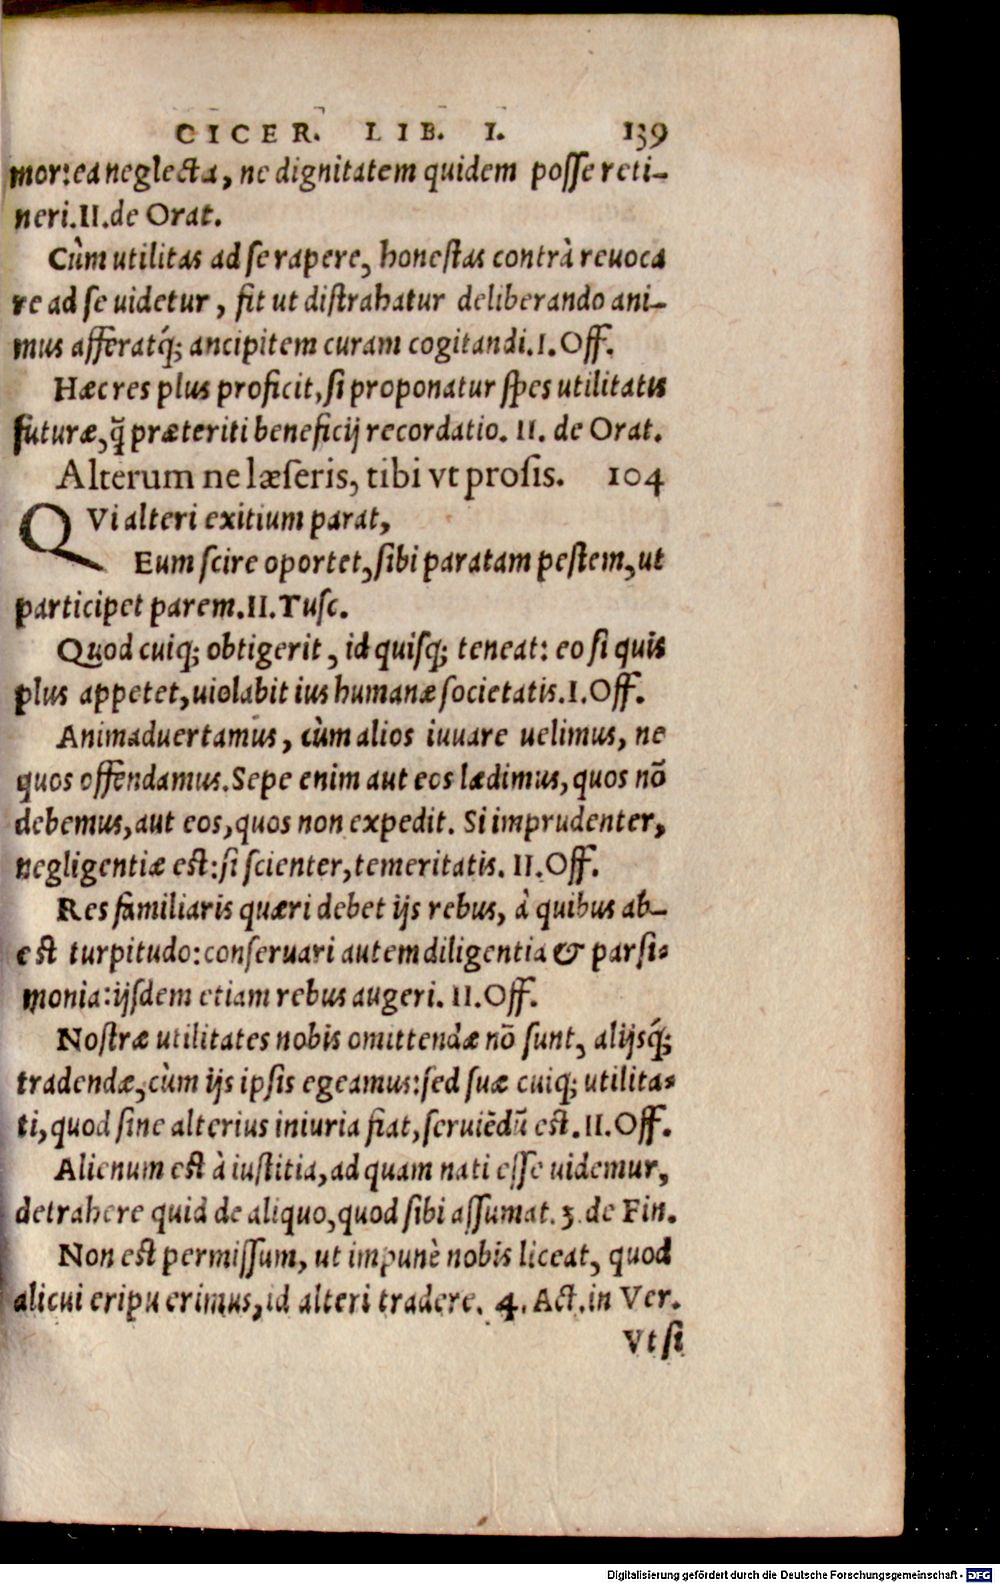 CICER. LIB. I. 139
mor: ea neglecta, ne dignitatem quidem posse reti-
neri. II. de Orat.
Cùm utilitas ad se rapere, honestas contrà reuoca
re ad se uidetur, fit ut distrahatur deliberando ani-
mus afferatq́; ancipitem curam cogitandi. I. Off.
Hæc res plus proficit, si proponatur spes utilitatis
futuræ, q̃ præteriti beneficij recordatio. II. de Orat.
Alterum ne læseris, tibi vt prosis. 104
QVi alteri exitium parat,
Eum scire oportet, sibi paratam pestem, ut
participet parem. II. Tusc.
Quod cuiq; obtigerit, id quisq; teneat: eo si quis
plus appetet, uiolabit ius humanæ societatis. I. Off.
Animaduertamus, cùm alios iuuare uelimus, ne
quos offendamus. Sepe enim aut eos lædimus, quos nõ
debemus, aut eos, quos non expedit. Si imprudenter,
negligentiæ est: si scienter, temeritatis. II. Off.
Res familiaris quæri debet ijs rebus, à quibus ab-
est turpitudo: conseruari autem diligentia & parsi-
monia: ijsdem etiam rebus augeri. II. Off.
Nostræ utilitates nobis omittendæ nõ sunt, alijsq́;
tradendæ, cùm ijs ipsis egeamus: sed suæ cuiq; utilita-
ti, quod sine alterius iniuria fiat, seruiẽdũ est. II. Off.
Alienum est à iustitia, ad quam nati esse uidemur,
detrahere quid de aliquo, quod sibi assumat. 3. de Fin.
Non est permissum, ut impunè nobis liceat, quod
alicui eripuerimus, id alteri tradere. 4. Act. in Ver.
Vt si
Digitalisierung gefördert durch die Deutsche Forschungsgemeinschaft - DFG